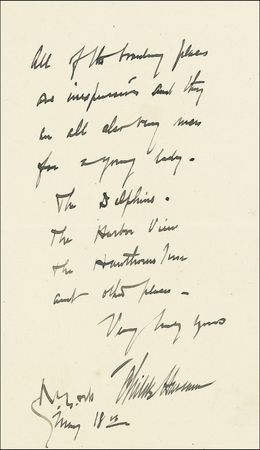 All of the boarding places
are inexpensive and they
are all also very near
for a young lady.
The Delphins.
The Harbor View
The Hawthorne Inn
and other places –
Very truly yours
Childe Hassam
N. York
May 18th